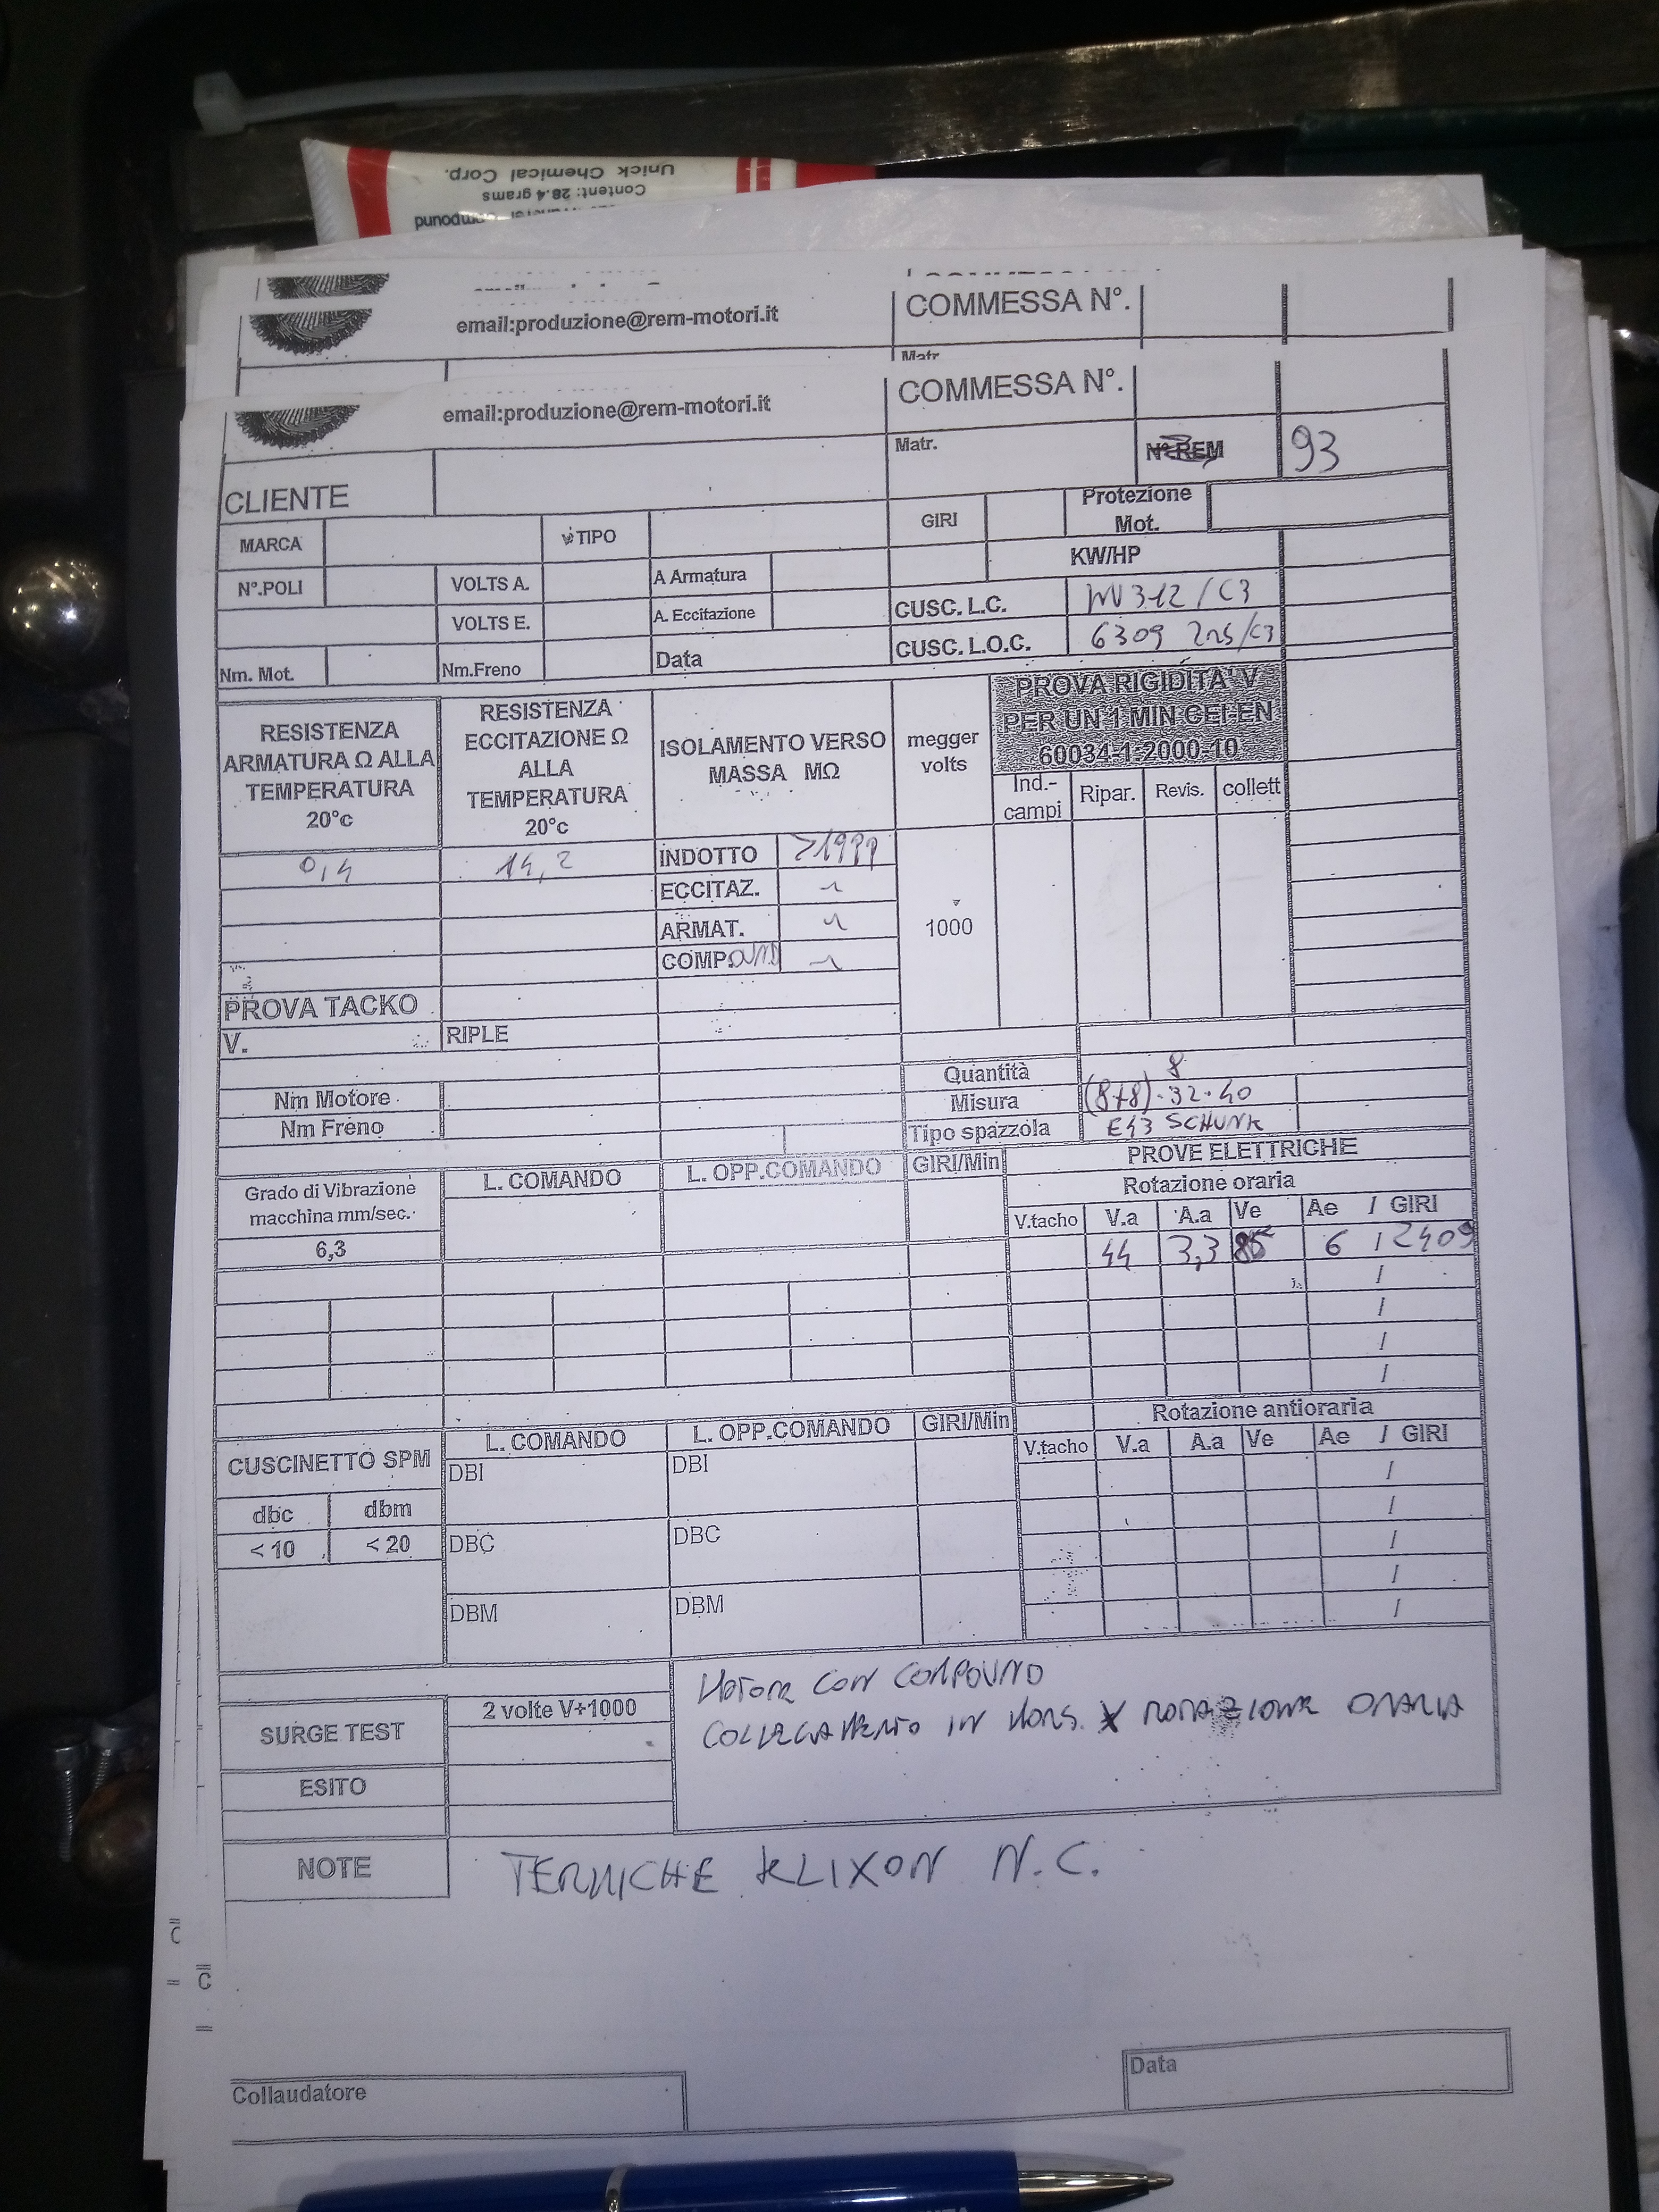 Unick Chemical Corp.
Content: 28.4 grams
email:produzione@rem-motori.it
COMMESSA N°.
Matr
email:produzione@rem-motori.it
COMMESSA N°.
Matr.
N° REM
93
CLIENTE
MARCA
TIPO
GIRI
Protezione
Mot.
N°.POLI
VOLTS A.
A Armatura
KW/HP
VOLTS E.
A. Eccitazione
CUSC. L.C.
NU 312 / C3
Nm. Mot.
Nm.Freno
Data
CUSC. L.O.C.
6309 2RS/C3
RESISTENZA
ARMATURA Ω ALLA
TEMPERATURA
20°c
RESISTENZA
ECCITAZIONE Ω
ALLA
TEMPERATURA
20°c
ISOLAMENTO VERSO
MASSA MΩ
megger
volts
PROVA RIGIDITA' V
PER UN 1 MIN CEI-EN
60034-1-2000-10
Ind.-
campi
Ripar.
Revis.
collett
0,4
14,2
INDOTTO
>1999
ECCITAZ.
ARMAT.
1000
COMP.OUND
PROVA TACKO
V.
RIPLE
Quantità
8
Nm Motore
Misura
(8+8).32.40
Nm Freno
Tipo spazzola
E43 SCHUNK
Grado di Vibrazione
macchina mm/sec.
6,3
L. COMANDO
L. OPP.COMANDO
GIRI/Min
PROVE ELETTRICHE
Rotazione oraria
V.tacho
V.a
A.a
Ve
Ae / GIRI
44
3,3
85
6 / 2409
/
/
/
/
CUSCINETTO SPM
L. COMANDO
L. OPP.COMANDO
GIRI/Min
Rotazione antioraria
V.tacho
V.a
A.a
Ve
Ae / GIRI
dbc
dbm
< 10
< 20
DBI
DBI
/
/
DBC
DBC
/
/
DBM
DBM
/
SURGE TEST
2 volte V+1000
ESITO
MOTORE CON COMPOUND
COLLEGAMENTO IN MORS. X ROTAZIONE ORARIA
NOTE
TERMICHE KLIXON N.C.
Collaudatore
Data